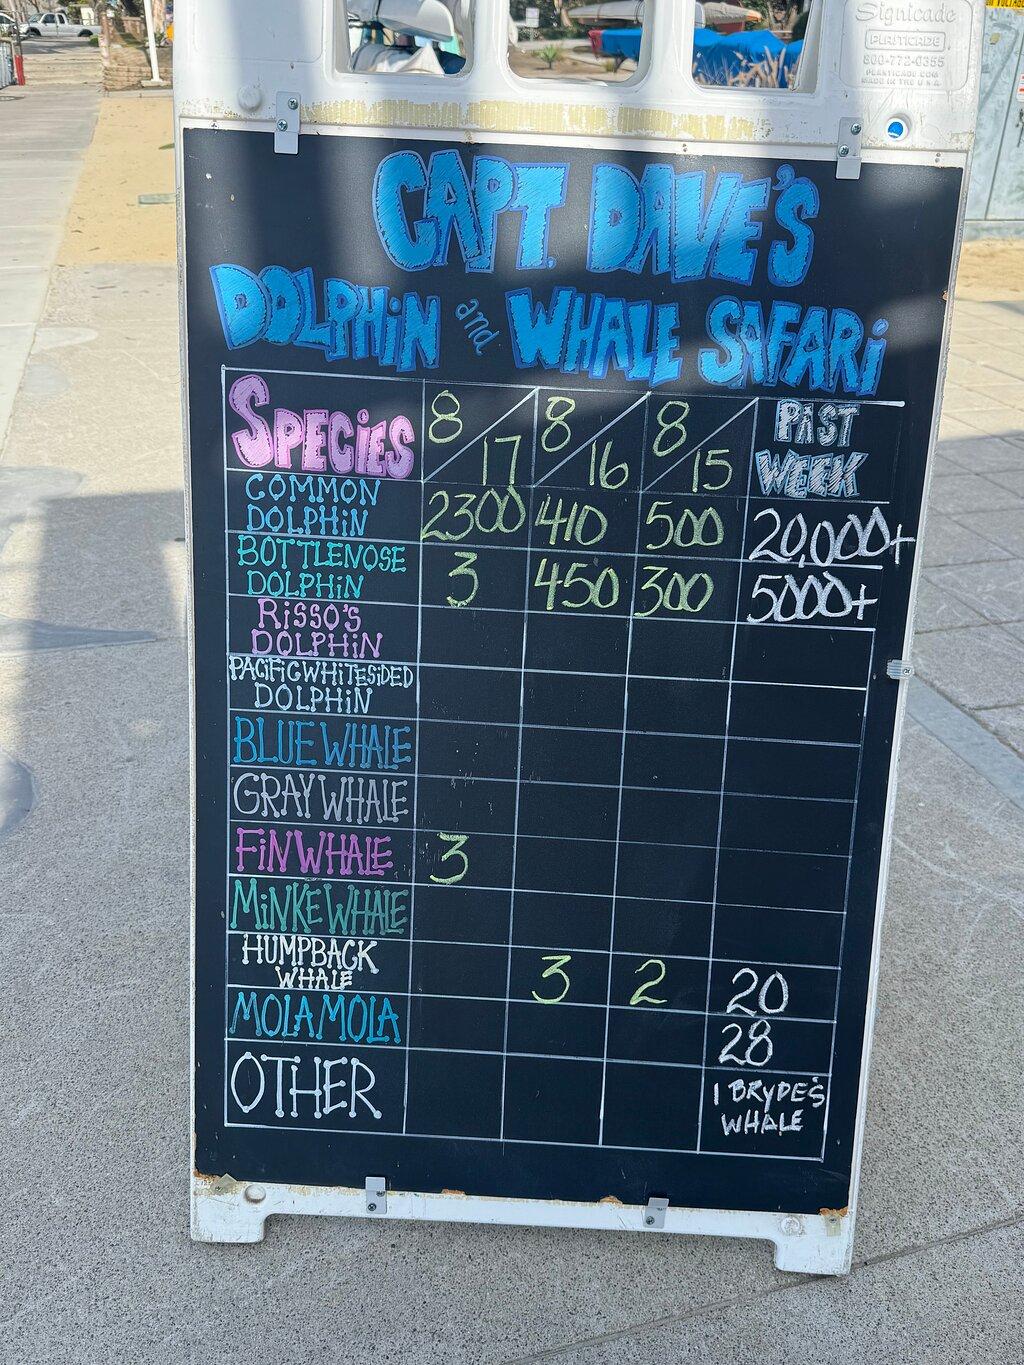 Signicade
PLASTICADE
800-772-0355
PLASTICADE.COM
MADE IN THE U.S.A.
CAPT. DAVE'S
DOLPHiN and WHALE SAFARi
SPECiES 8/17 8/16 8/15 PAST WEEK
COMMON DOLPHiN 2300 410 500 20,000+
BOTTLENOSE DOLPHiN 3 450 300 5000+
RiSSO'S DOLPHiN
PACiFiC WHiTESiDED DOLPHiN
BLUE WHALE
GRAY WHALE
FiN WHALE 3
MiNKE WHALE
HUMPBACK WHALE 3 2 20
MOLA MOLA 28
OTHER 1 BRyDE'S WHALE